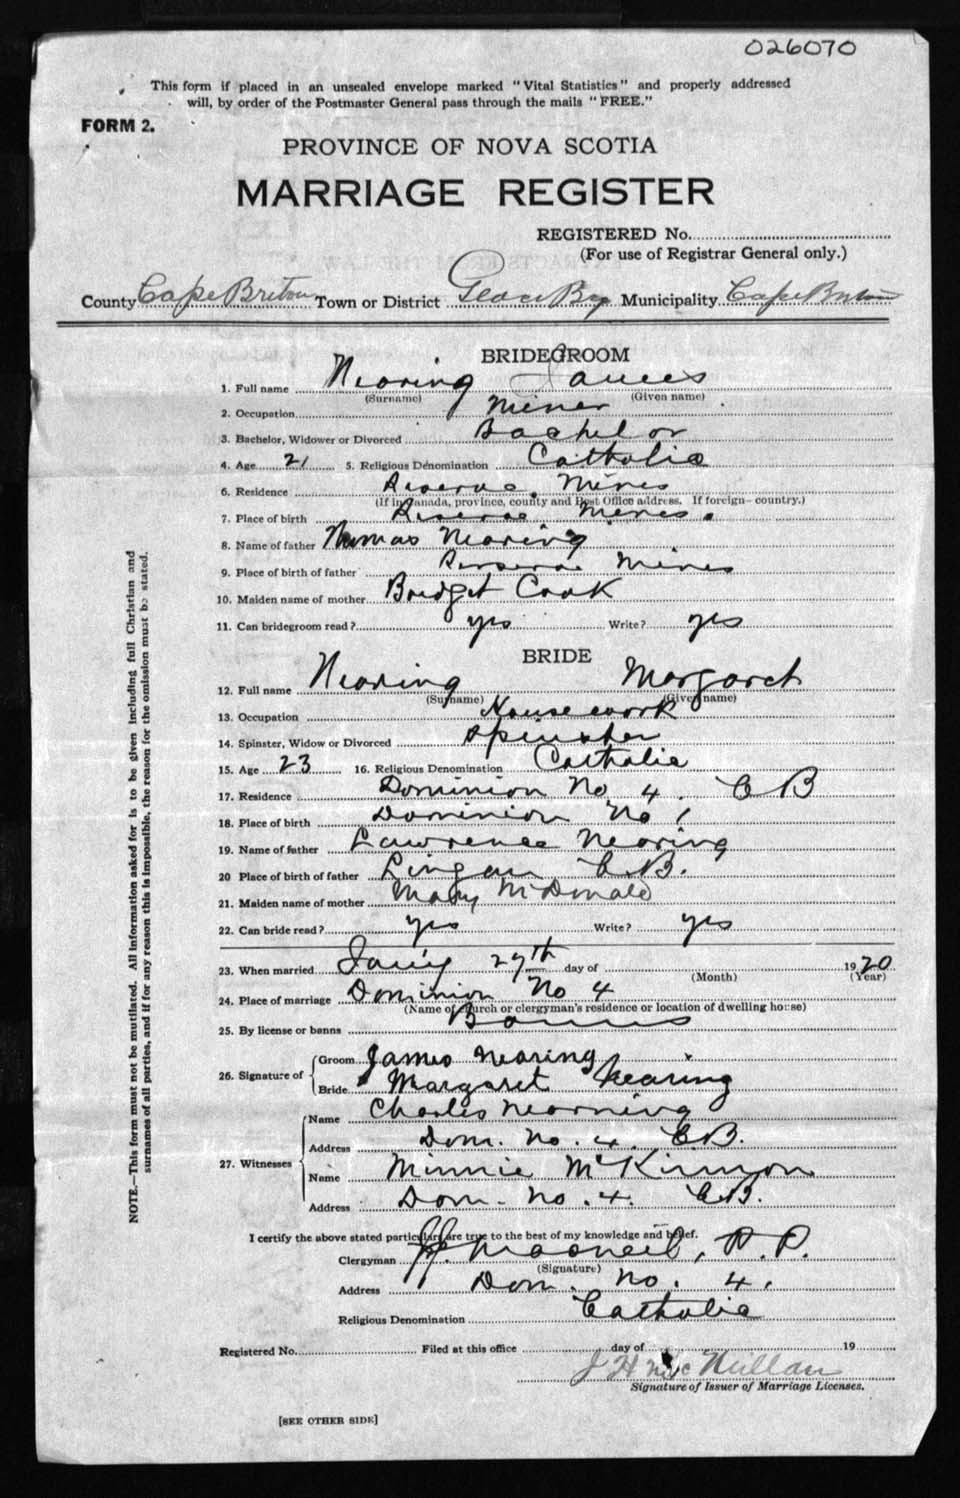 026070
This form if placed in an unsealed envelope marked "Vital Statistics" and properly addressed
will, by order of the Postmaster General pass through the mails "FREE."
FORM 2.
PROVINCE OF NOVA SCOTIA
MARRIAGE REGISTER
REGISTERED No.
(For use of Registrar General only.)
County Cape Breton Town or District Glace Bay Municipality Cape Breton
BRIDEGROOM
1. Full name Nearing James
(Surname) (Given name)
2. Occupation Miner
3. Bachelor, Widower or Divorced Bachelor
4. Age 21 5. Religious Denomination Catholic
6. Residence Reserve Mines
(If in Canada, province, county and Post Office address. If foreign—country.)
7. Place of birth Reserve Mines.
8. Name of father Thomas Nearing
9. Place of birth of father Reserve Mines
10. Maiden name of mother Bridget Cook
11. Can bridegroom read? yes Write? yes
BRIDE
12. Full name Nearing Margaret
(Surname) (Given name)
13. Occupation Housework
14. Spinster, Widow or Divorced Spinster
15. Age 23 16. Religious Denomination Catholic
17. Residence Dominion No 4. C B
18. Place of birth Dominion No 1
19. Name of father Lawrence Nearing
20 Place of birth of father Lingan C.B.
21. Maiden name of mother Mary McDonald
22. Can bride read? yes Write? yes
23. When married Jan'y 27th day of 1920
(Month) (Year)
24. Place of marriage Dominion No 4
(Name of church or clergyman's residence or location of dwelling house)
25. By license or banns Banns
26. Signature of Groom James Nearing
Bride Margaret Nearing
27. Witnesses Name Charles Nearning
Address Dom. No. 4. C.B.
Name Minnie McKinnon
Address Dom. No. 4. C.B.
I certify the above stated particulars are true to the best of my knowledge and belief.
Clergyman MacNeil, P.P.
(Signature)
Address Dom. No. 4.
Religious Denomination Catholic
Registered No. Filed at this office day of 19
J H McMillan
Signature of Issuer of Marriage Licenses.
[SEE OTHER SIDE]
NOTE.—This form must not be mutilated. All information asked for is to be given including full Christian and
surnames of all parties, and if for any reason this is impossible, the reason for the omission must be stated.